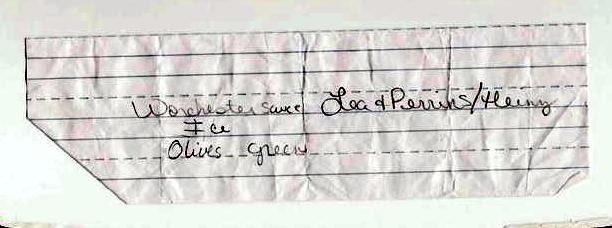 Worchester sauce Lea & Perrins/Heinz
Ice
Olives green